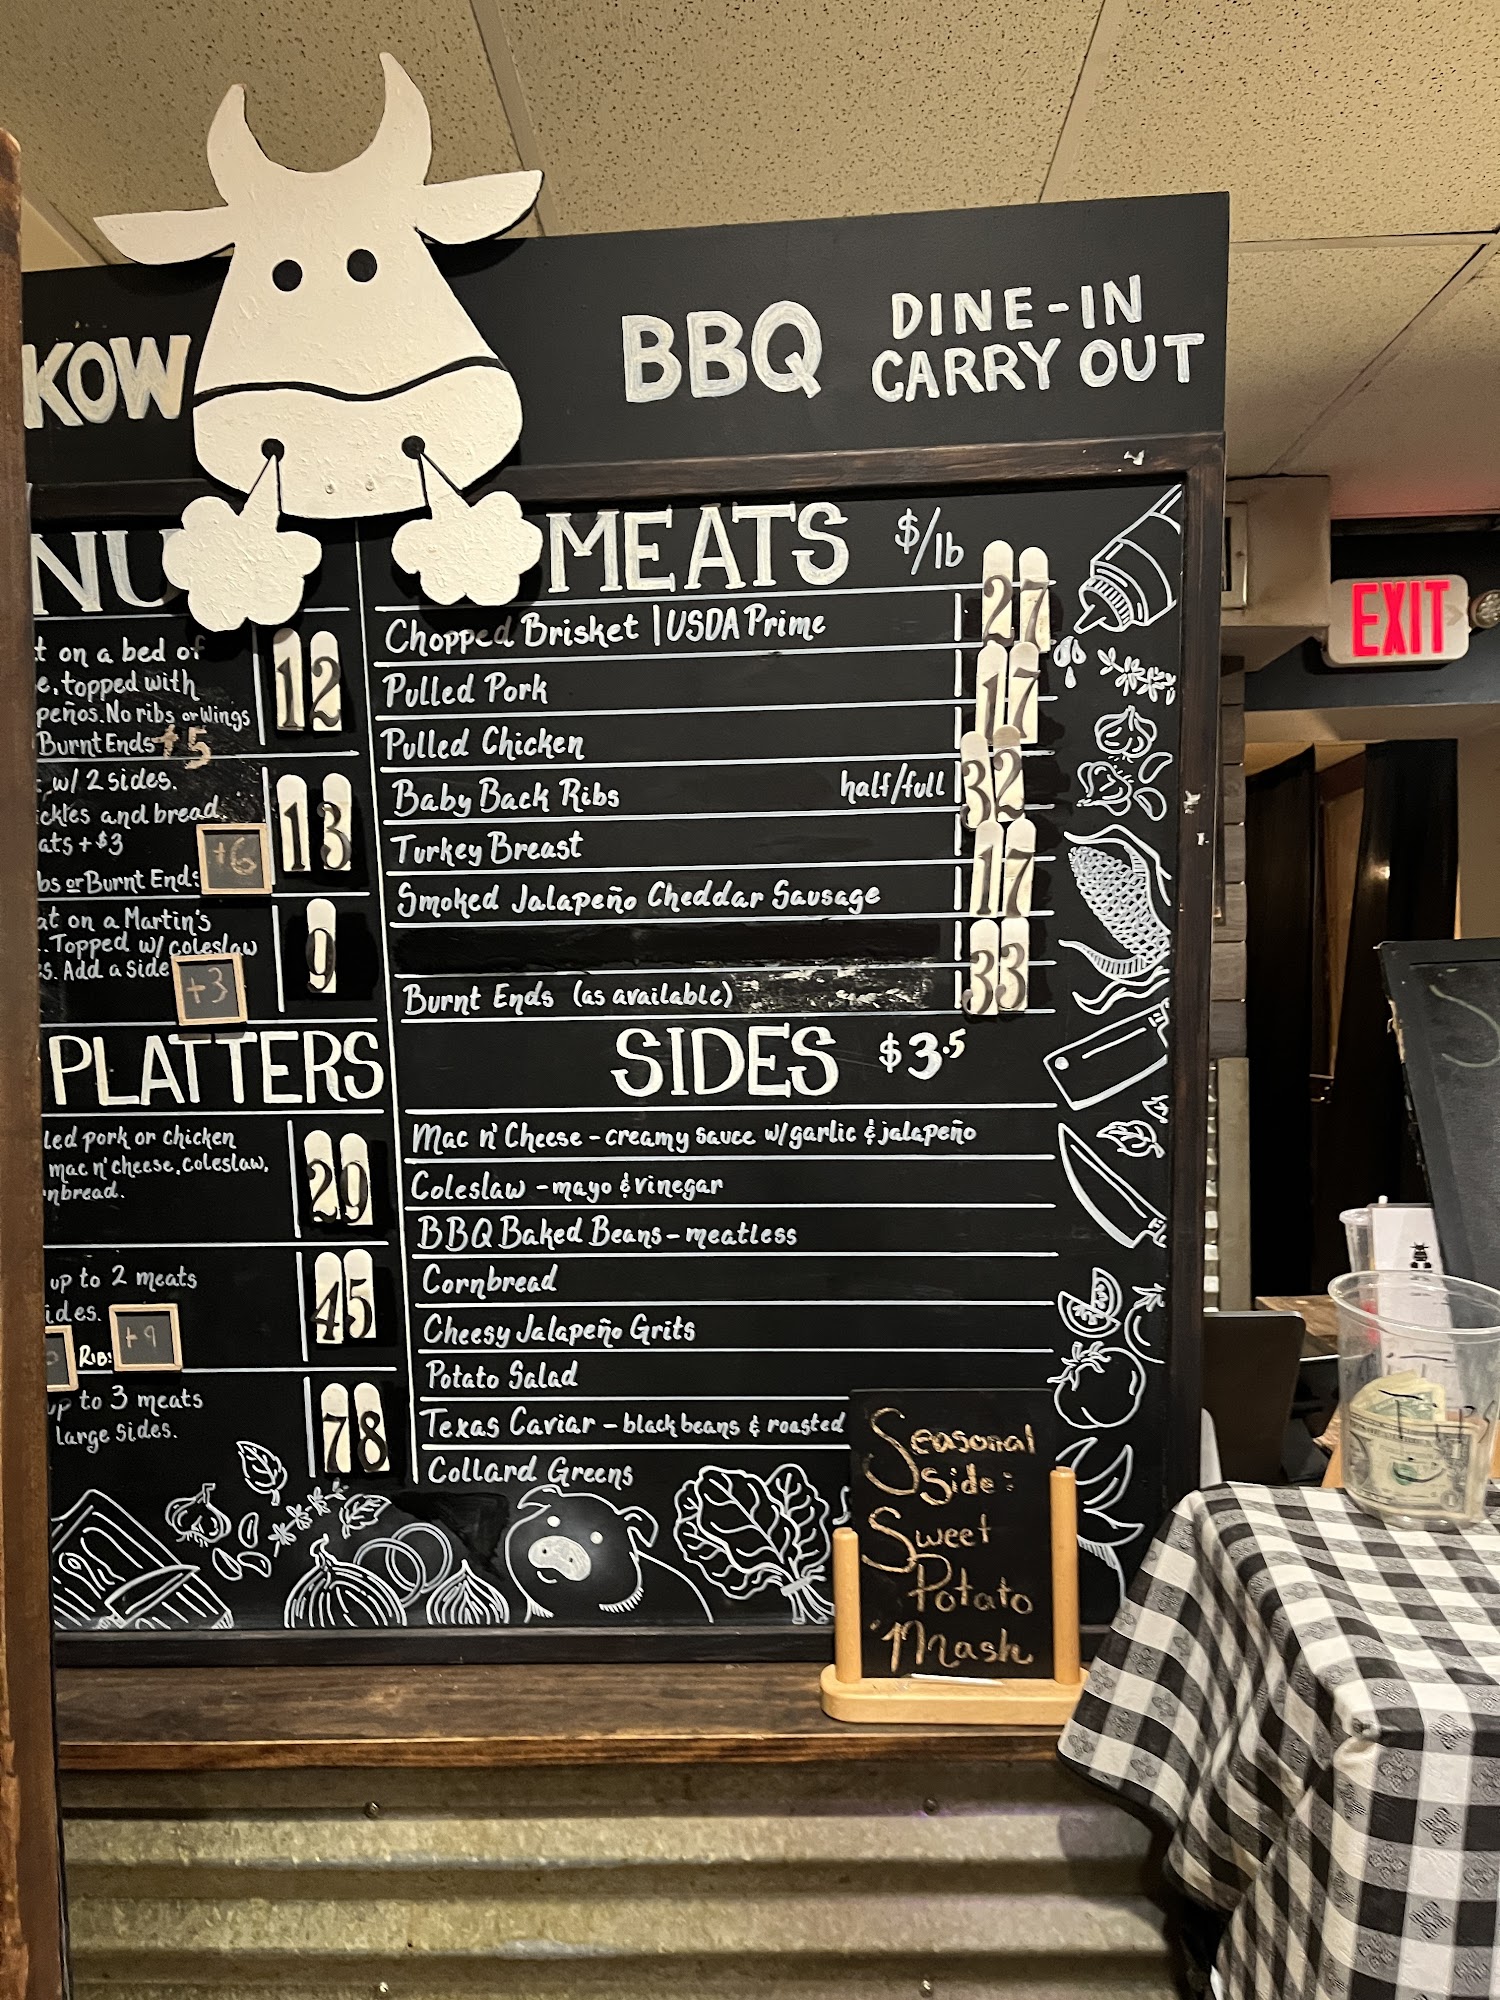 KOW
BBQ
DINE-IN
CARRY OUT
NU
t on a bed of
e, topped with
peños. No ribs or Wings
Burnt Ends +5
12
w/ 2 sides.
ckles and bread.
ats + $3
bs or Burnt Ends
+6
13
at on a Martin's
. Topped w/ coleslaw
s. Add a side
+3
9
PLATTERS
led pork or chicken
mac n' cheese, coleslaw,
rnbread.
29
up to 2 meats
ides.
Ribs
+9
45
up to 3 meats
large sides.
78
MEATS $/lb
Chopped Brisket | USDA Prime 27
Pulled Pork 17
Pulled Chicken
Baby Back Ribs half/full 32
Turkey Breast
Smoked Jalapeño Cheddar Sausage 17
Burnt Ends (as available) 33
SIDES $3.5
Mac n' Cheese - creamy sauce w/ garlic & jalapeño
Coleslaw - mayo & vinegar
BBQ Baked Beans - meatless
Cornbread
Cheesy Jalapeño Grits
Potato Salad
Texas Caviar - black beans & roasted
Collard Greens
Seasonal
Side:
Sweet
Potato
Mash
EXIT